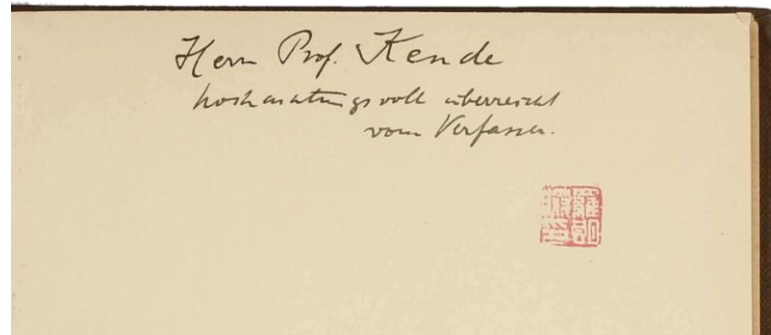 Herrn Prof. Kende
hochachtungsvoll überreicht
vom Verfasser.